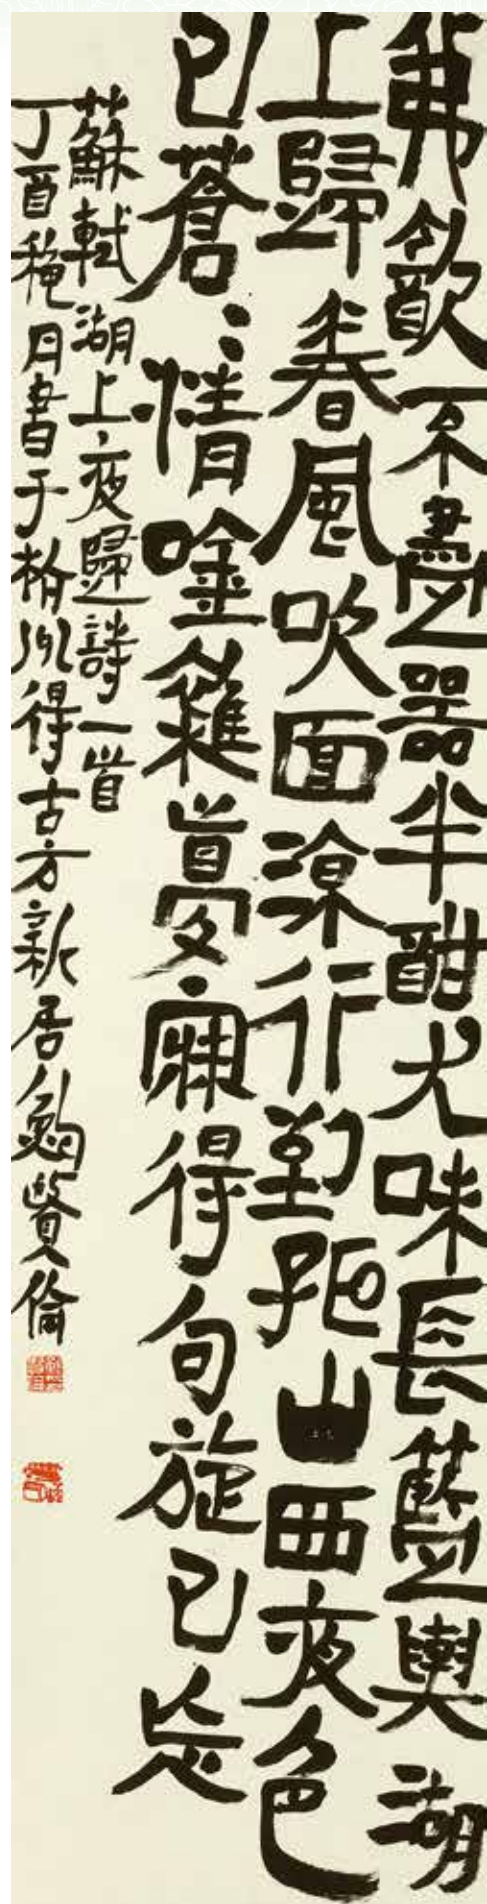 我飲不盡器半酣尤味長籃輿湖
上歸春風吹面涼行到孤山西夜色
已蒼〻情唫雜夢寐得句旋已忘
蘇軾湖上夜歸詩一首
丁酉穐月書于杭州得古方新居鮑賢倫